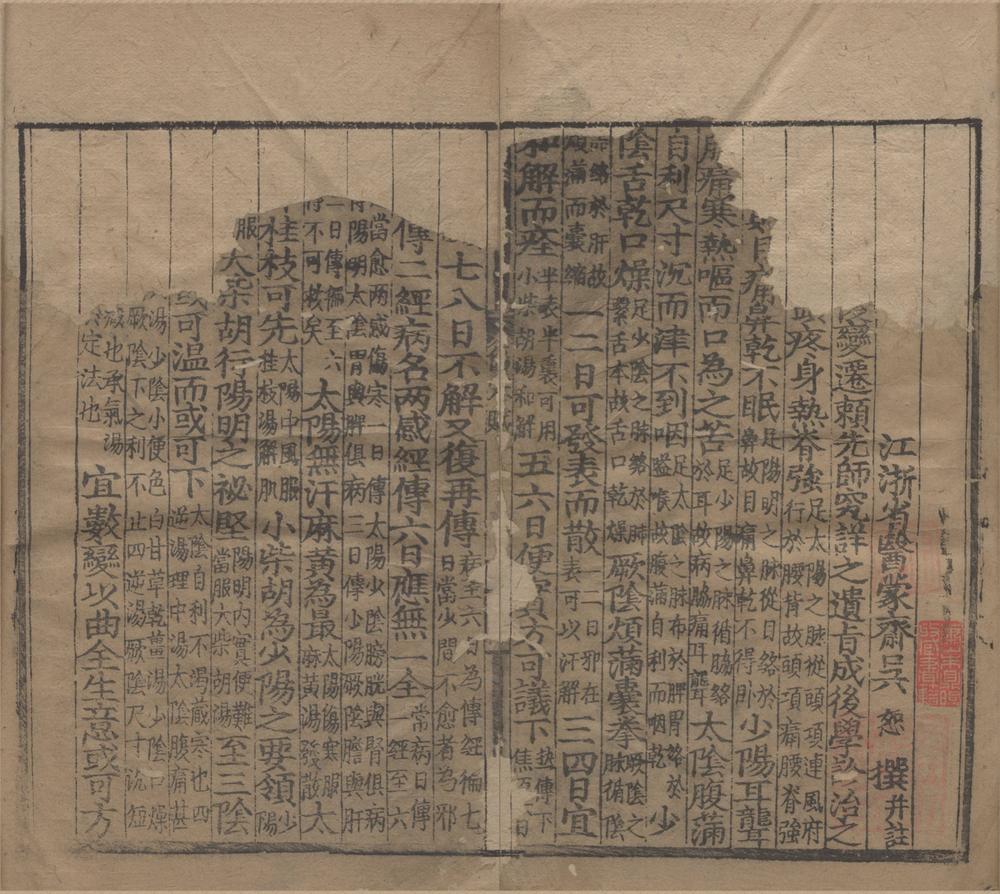 江浙省醫蒙齋吳 恕 撰 并註
變遷賴先師究詳之遺旨成後學診治之
疼身熱脊強 足太陽之脉從頭項連風府行於腰背故頭項痛腰脊強
目痛鼻乾不眠 足陽明之脉從目絡於目鼻故目痛鼻乾不得卧 少陽耳聾
痛寒熱嘔而口為之苦 足少陽之脉循脇絡於耳故病脇痛耳聾 太陰腹滿
自利尺寸沉而津不到咽 足太陰之脉布於脾胃絡於嗌喉故腹滿自利而咽乾 少
陰舌乾口燥 足少陰之脉絡於肺繫舌本故舌口乾燥 厥陰煩滿囊拳 厥陰之脉循陰
絡於肝故煩滿而囊縮 一二日可發表而散 一二日邪在表可以汗解 三四日宜
和解而痊 半表半裏可用小柴胡湯和解 五六日便實方可議下 傳下焦五日
七八日不解又復再傳 病至六日為傳經徧七日當少間不愈者為邪
傳二經病名兩感經傳六日應無一全 常病日傳一經至六
當愈兩感傷寒一日傳太陽少陰膀胱與腎俱病陽明太陰胃與脾俱病三日傳少陽厥陰膽與肝
二日傳徧至六得不可救矣 太陽無汗麻黃為最 太陽傷寒服麻黃湯發散 太
桂枝可先 太陽中風服桂枝湯解肌 小柴胡為少陽之要領 少陽
服 大柴胡行陽明之秘堅 陽明內實便難當服大柴胡湯 至三陰
可溫而或可下 太陰自利不渴藏寒也四逆湯理中湯太陰腹痛甚
湯少陰小便色白甘草乾薑湯少陰口燥厥陰下之利不止四逆湯厥陰尺寸短
減也承氣湯定法也 宜數變以曲全生意或可方